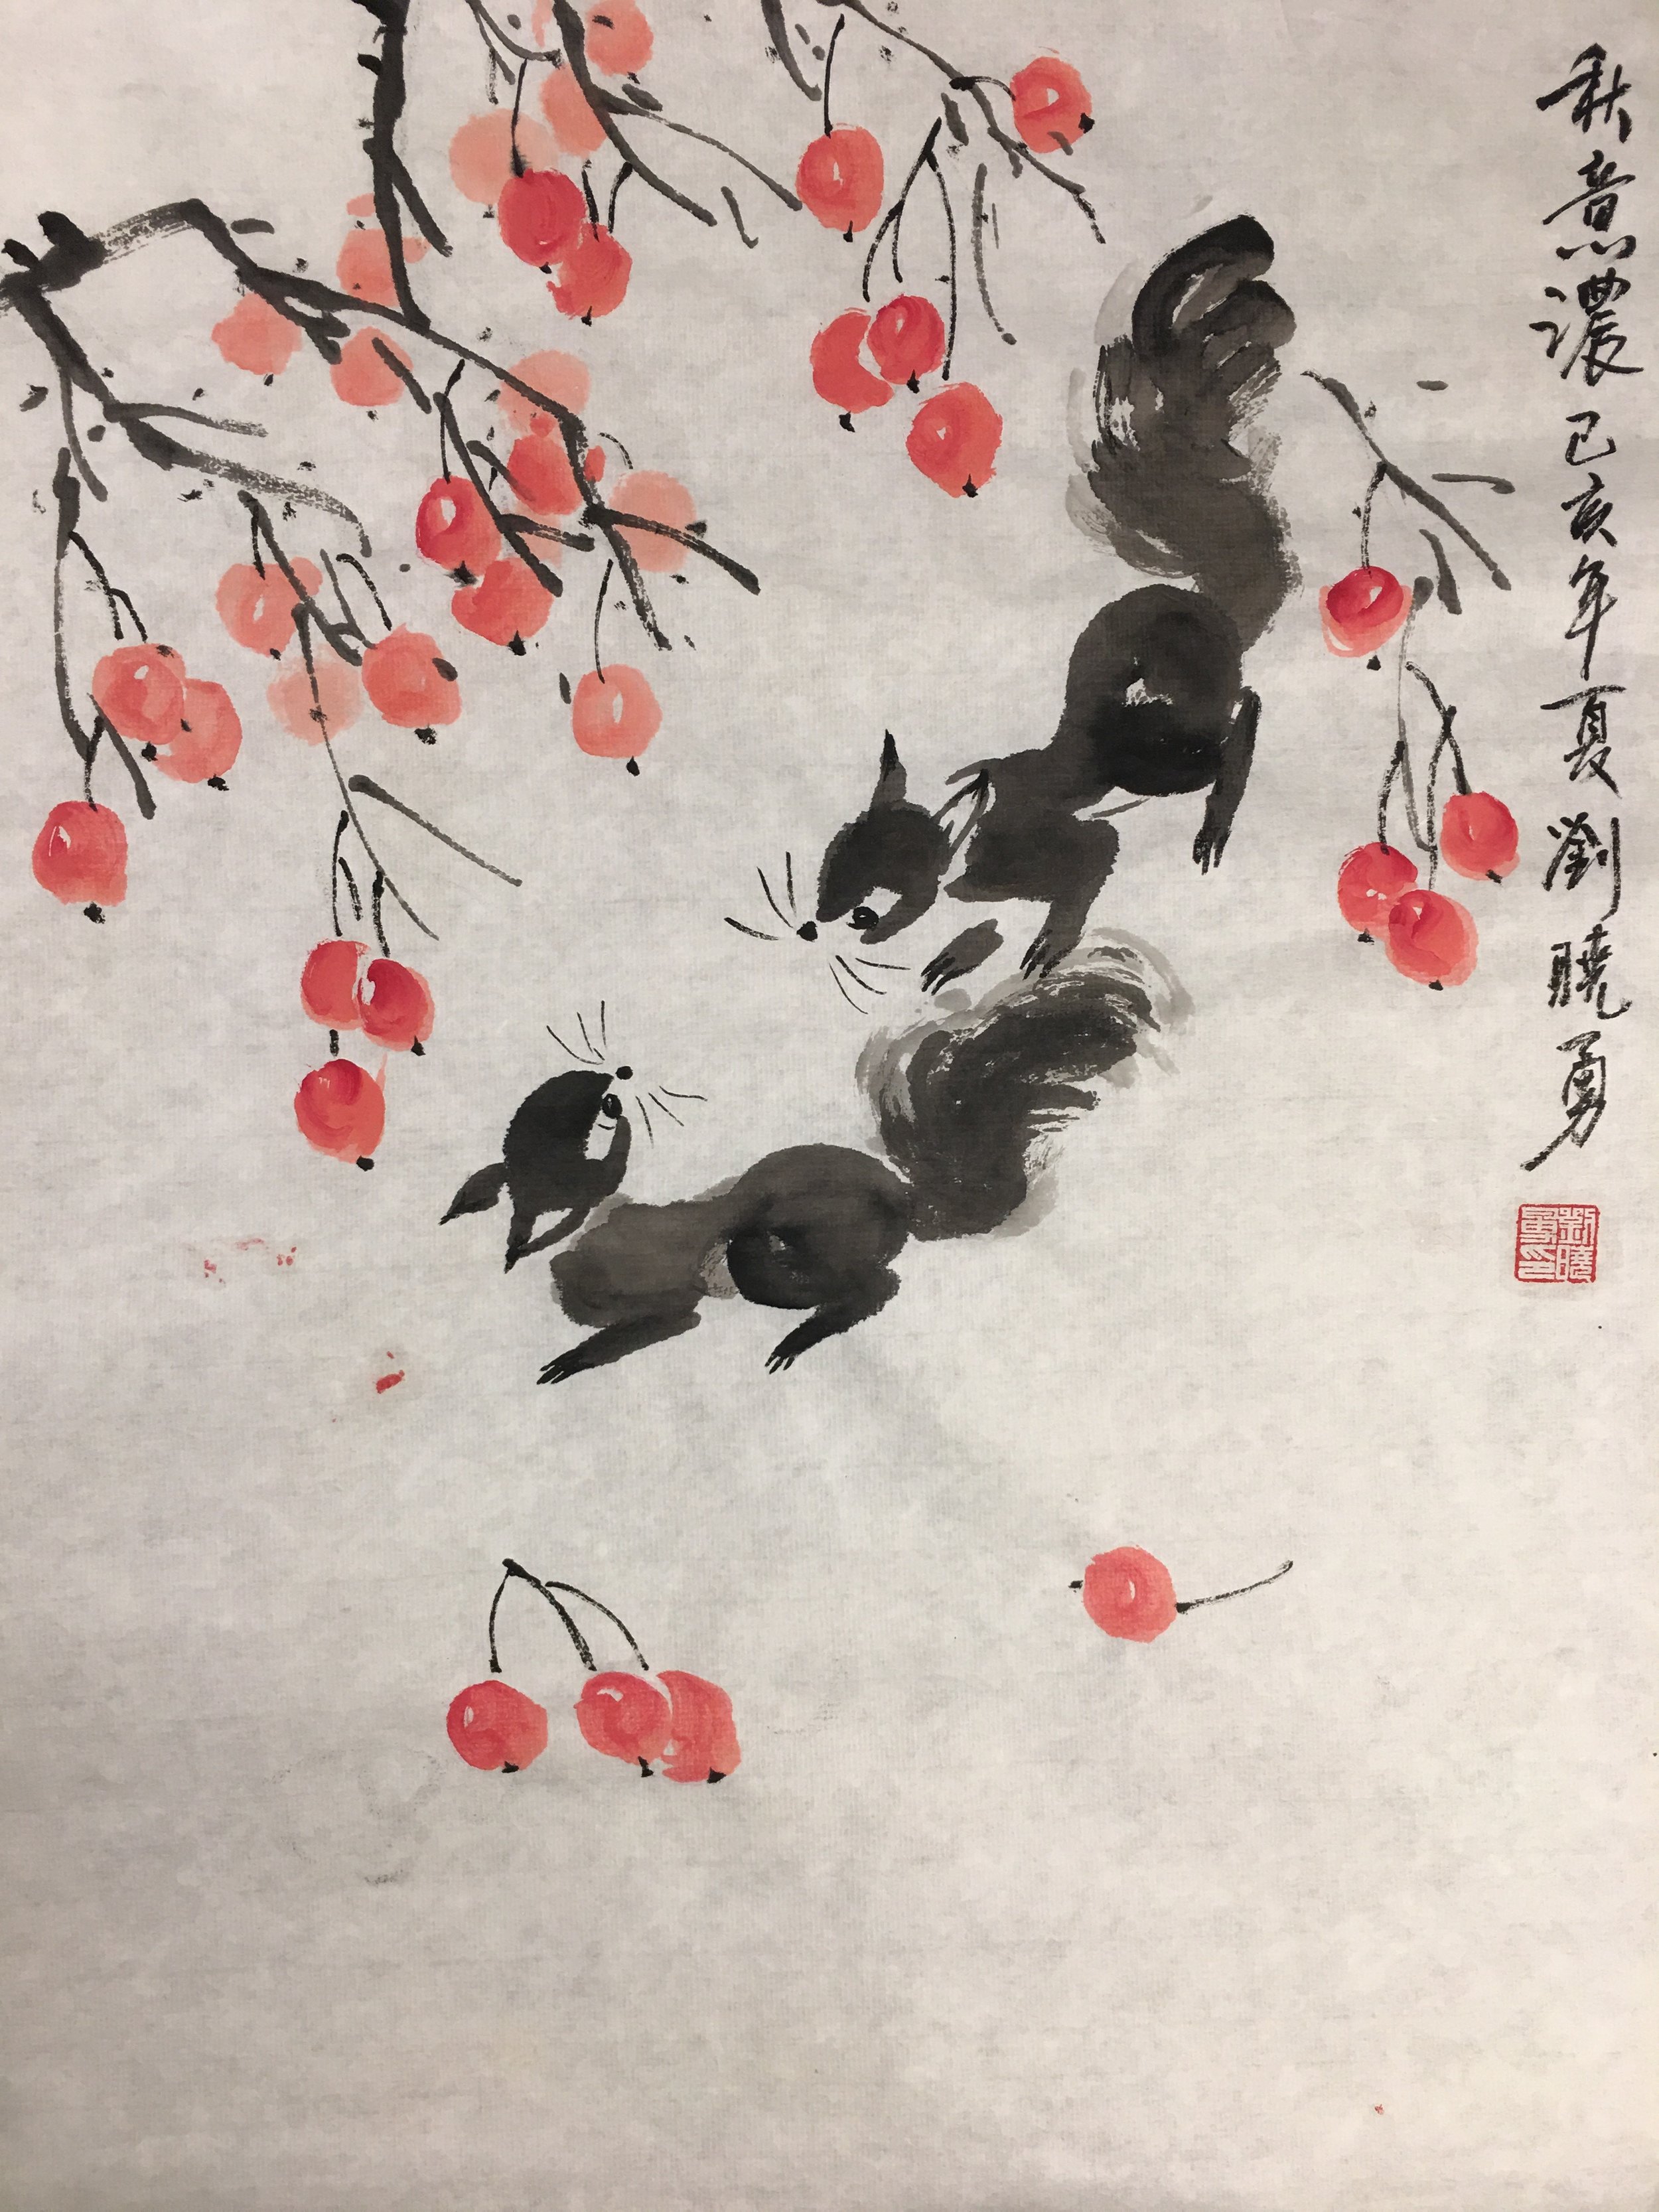 秋意濃己亥年夏劉曉勇
劉曉
勇印